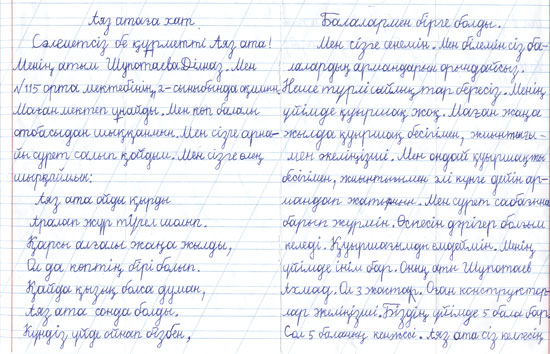 Аяз атаға хат.
Сәлеметсіз бе құрметті Аяз ата!
Менің атым Шупотаева Ділназ. Мен
№115 орта мектебінің 2-сыныбында оқимын.
Маған мектеп ұнайды. Мен көп балалы
отбасыдан шыққанмын. Мен сізге арна-
йы сурет салып қойдым. Мен сізге өлең
шырқаймын:
Аяз ата ойды қырды
Аралап жүр түгел шолып.
Қарсы алғалы жаңа жылды,
Ол да көптің бірі болып.
Қайда қызық болса думан,
Аяз ата сонда болды.
Күндіз үйде ойнап бізбен,
Балалармен бірге болды.
Мен сізге сенемін. Мен білемін сіз ба-
лалардың армандарын орындайсыз.
Неше түрлі сыйлықтар бересіз. Менің
үйімде қуыршақ жоқ. Маған жаңа
жылда қуыршақ бесігімен, жиынтығы-
мен әкеліңізші. Мен ондай қуыршақты
бесігімен, жиынтығымен әлі күнге дейін ар-
мандап жатырмын. Мен сурет сабағына
барып жүрмін. Өспесін дәрігер болғым
келеді. Қуыршағымды емдеймін. Менің
үйімде інім бар. Оның аты Шупотаев
Ахмад. Ол 3 жастар. Оған конструктор-
лар әкеліңізші. Біздің үйімізде 5 бала бар.
Сол 5 баланың кенжесі. Аяз ата сіз келгесін